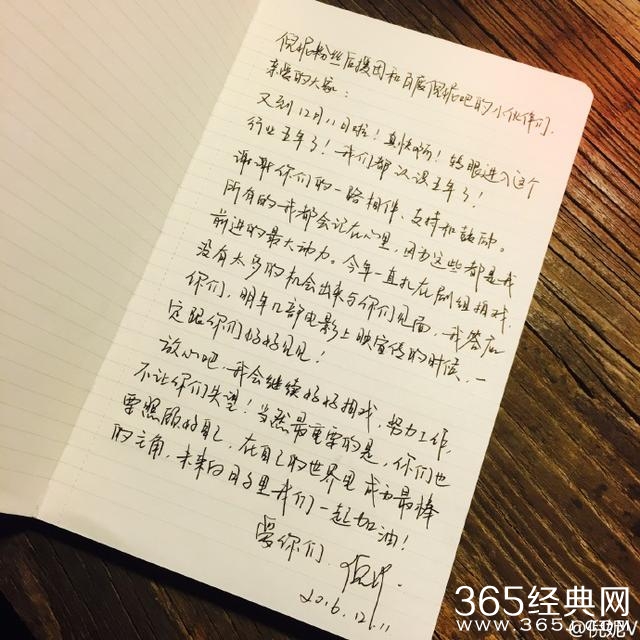 倪妮粉丝后援团和百度倪妮吧的小伙伴们，
亲爱的大家：
又到12月11日啦！真快呀！转眼进入这个
行业五年了！我们都认识五年了！
谢谢你们的一路相伴、支持和鼓励。
所有的我都会记在心里，因为这些都是我
前进的最大动力。今年一直扎在剧组拍戏，
没有太多的机会出来与你们见面，我答应
你们，明年几部电影上映宣传的时候，一
定跟你们好好见见！
放心吧，我会继续好好拍戏，努力工作，
不让你们失望！当然最重要的是，你们也
要照顾好自己，在自己的世界里成为最棒
的主角，未来的日子里我们一起加油！
爱你们，倪妮.
2016.12.11
365经典网
WWW.365JDW.COM
@倪妮